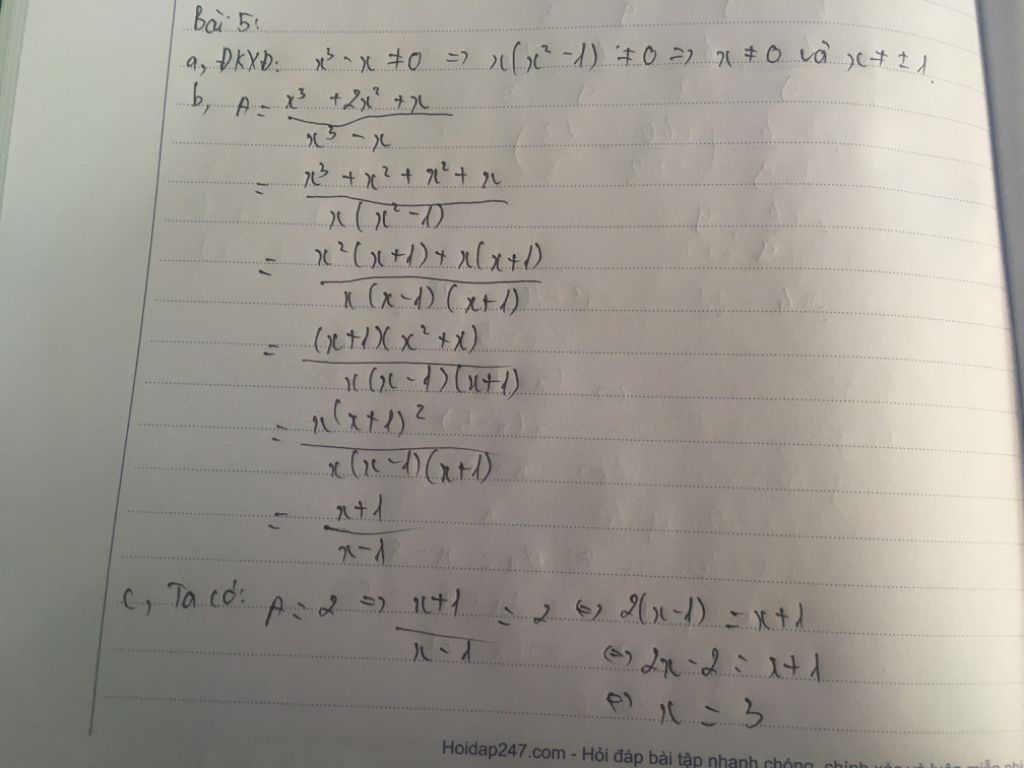 Bài 5:
a, ĐKXĐ: x³ - x ≠ 0 => x(x² - 1) ≠ 0 => x ≠ 0 và x ≠ ± 1.
b, A = x³ + 2x² + x / x³ - x
= x³ + x² + x² + x / x(x² - 1)
= x²(x+1) + x(x+1) / x(x-1)(x+1)
= (x+1)(x² + x) / x(x-1)(x+1)
= x(x+1)² / x(x-1)(x+1)
= x+1 / x-1
c, Ta có: A = 2 => x+1 / x-1 = 2 <=> 2(x-1) = x+1
<=> 2x - 2 = x + 1
<=> x = 3
Hoidap247.com - Hỏi đáp bài tập nhanh chóng, chính xác và luôn miễn phí